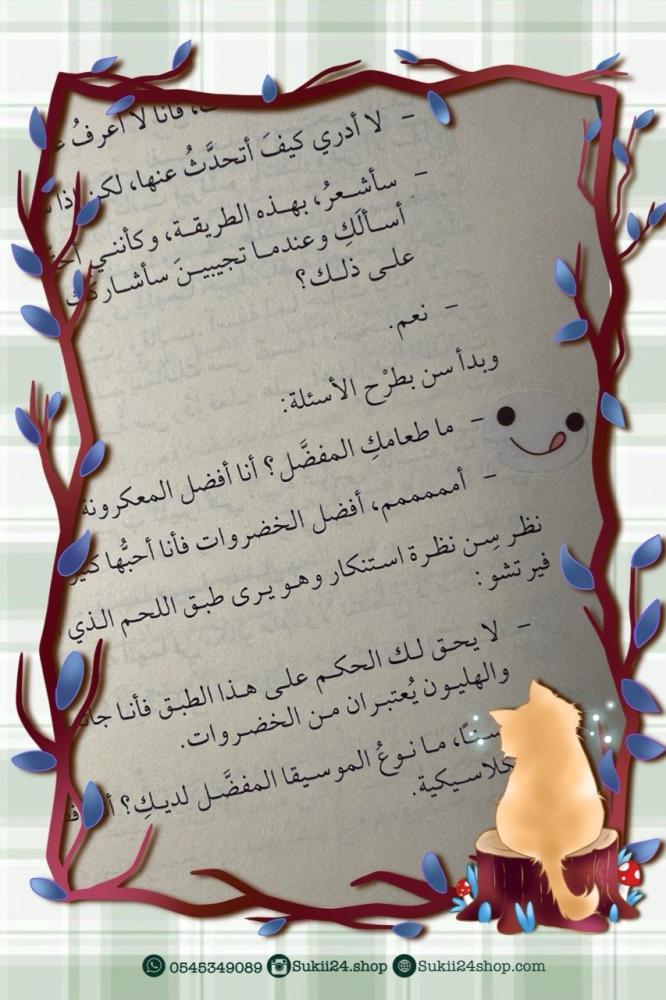 فأنا لا أعرفُ
- لا أدري كيفَ أتحدَّثُ عنها، لكن إذا
- سأشعرُ، بهذه الطريقة، وكأنني
أسألَكِ وعندما تجيبينَ سأشاركك
على ذلك؟
- نعم.
وبدأ سن بطرْح الأسئلة:
- ما طعامكِ المفضَّل؟ أنا أفضل المعكرونة
- أمممممم، أفضل الخضروات فأنا أحبُّها
نظر سِن نظرة استنكار وهو يرى طبق اللحم الذي
فيرتشو:
- لا يحق لك الحكم على هذا الطبق فأنا
والهليون يُعتبران من الخضروات.
ما نوعُ الموسيقا المفضَّل لديكِ؟
كلاسيكية.
0545349089 Sukii24.shop Sukii24shop.com